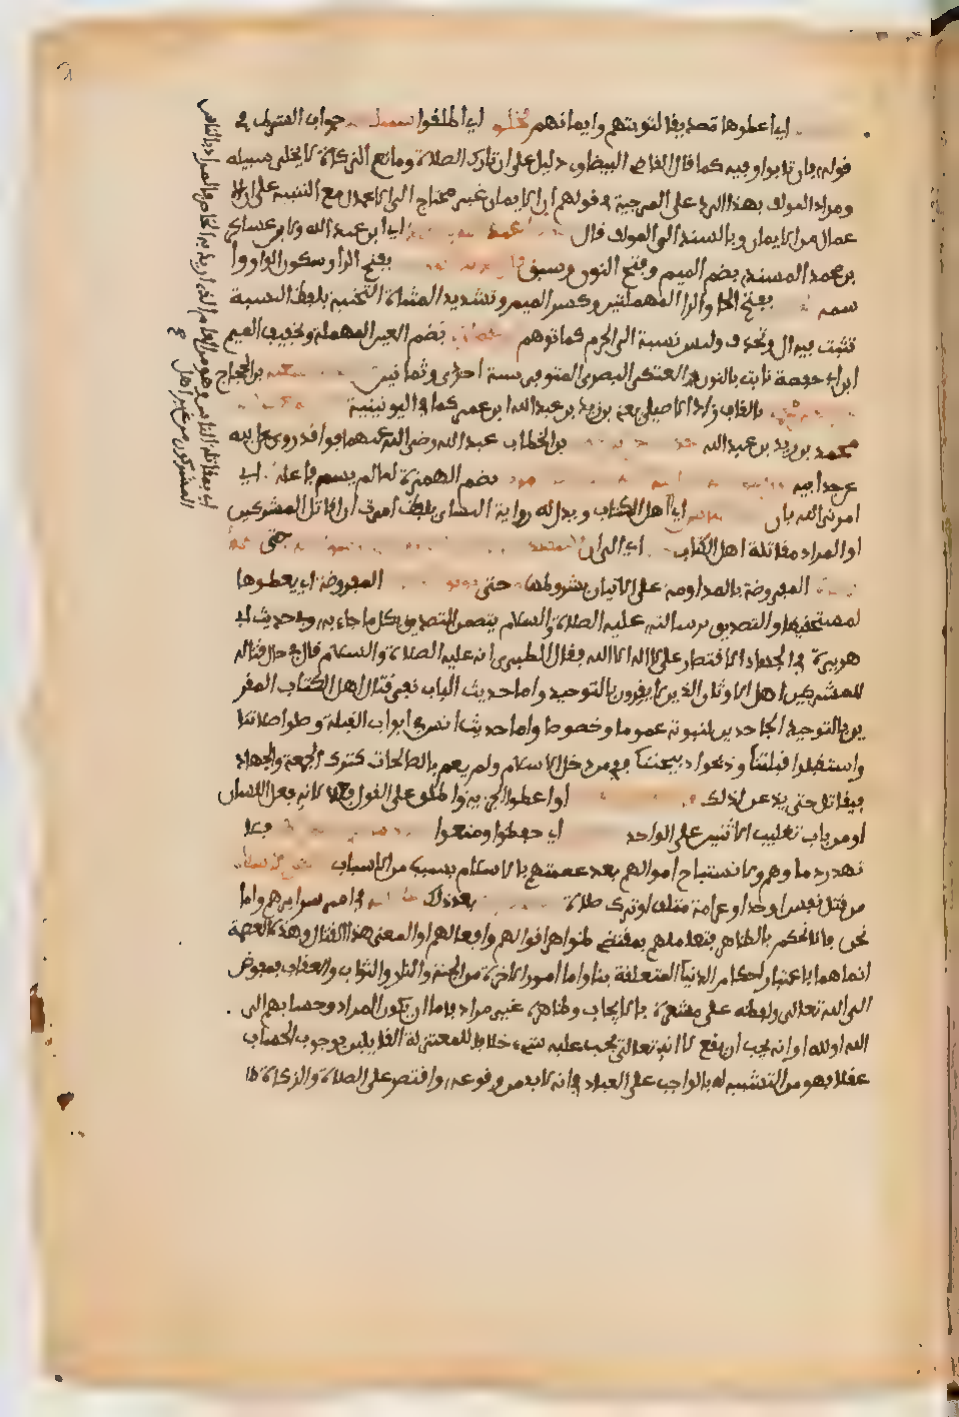 اي اعطوها تصديقا لتوبتهم وايمانهم فخلوا اي اطلقوا جواب الشرط في
قوله فان تابوا وفيه كما قال القاضي البيضاوي دليل على ان تارك الصلاة ومانع الزكاة لا يخلى سبيله
ومراد المولف بهذا الرد على المرجية في قولهم ان الايمان غير محتاج الى الاعمال مع التنبيه على ان الا
عمال من الايمان وبالسند الى المولف قال اي ابن عبد الله ولابن عساكر
بن محمد المسندي بضم الميم وفتح النون وسبق بفتح الرا وسكون الواو وا
سمه بفتح الحا والرا المهملتين وكسر الميم وتشديد المثناة التحتية بلفظ النسبة
تثبت فيه ال وتحذف وليس نسبة الى الحرم كما توهم بضم العين المهملة وتخفيف الميم
ابن ابي حفصة نابت بالنون العتكي البصري المتوفى سنة احدى وثمانين بن الحجاج
بالقاف زاد الاصيلي يعني بن زيد بن عبد الله ابن عمر كما في اليونينية
محمد بن زيد بن عبد الله بن الخطاب عبد الله رضي الله عنهما فواقد روى عن ابيه
عن جد ابيه بضم الهمزة لما لم يسم فاعله اي
امرني الله بان اي اهل الكتاب ويدل له رواية النساي بلفظ امرت ان اقاتل المشركين
او المراد مقاتلة اهل الكتاب اي الى ان حتى
المفروضة بالمداومة على الاتيان بشروطها حتى المفروضة اي يعطوها
لمستحقيها والتصديق برسالته عليه الصلاة والسلام يتضمن التصديق بكل ما جاء به وفي حديث ابي
هريرة في الجهاد الاقتصار على لا اله الا الله فقال الطبري انه عليه الصلاة والسلام قاله في حال قتاله
للمشركين اهل الاوثان الذين لا يقرون بالتوحيد واما حديث الباب ففي قتال اهل الكتاب المقر
ين بالتوحيد الجاحدين لنبوته عموما وخصوصا واما حديث انس في ابواب القبلة وصلوا صلاتنا
واستقبلوا قبلتنا وذبحوا ذبيحتنا ففيمن دخل الاسلام ولم يعمل بالصالحات كترك الجمعة والجهاد
فيقاتل حتى يذعن لذلك او اعطوا الجزية واطلق على القول فعلا لانه فعل اللسان
او من باب تغليب الاثنين على الواحد اي حفظوا ومنعوا فلا
تهدر دماوهم ولا تستباح اموالهم بعد عصمتهم بالاسلام بسبب من الاسباب
من قتل نفس او حد او غرامة متلف او ترك صلاة بعد ذلك في امر سرايرهم واما
نحن فانا نحكم بالظاهر فنعاملهم بمقتضى ظواهر اقوالهم وافعالهم او المعنى هذا القتال وهذه العصمة
انما هما باعتبار احكام الدنيا المتعلقة بنا واما امور الاخرة من الجنة والنار والثواب والعقاب فمفوض
الى الله تعالى ولفظه على مشعرة بالايجاب وظاهره غير مراد فاما ان يكون المراد وحسابهم الى
الله او لله او انه يجب ان يقع لا انه تعالى يجب عليه شيء خلافا للمعتزلة القايلين بوجوب الحساب
عقلا فهو من التشبيه له بالواجب على العباد في انه لا بد من وقوعه واقتصر على الصلاة والزكاة
اي بمقاتلة الناس وهو من العام الذي اريد به الخاص والمراد بالناس
المشركون من غير اهل